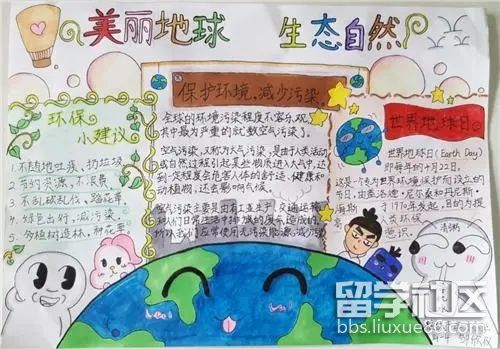 美丽地球 生态自然
环保
小建议
1.不随地吐痰、扔垃圾
2.节约资源、不浪费
3.不乱砍乱伐、踏花草
4.绿色出行,减污染
5.多植树造林、种花草
保护环境、减少污染
全球的环境污染程度不容乐观
其中最为严重的就数空气污染了。
空气污染,又称为大气污染,是由于人类活动
或自然过程引起某些物质进入大气中,达
到一定程度危害人体的舒适、健康和
动植物,还会影响气候。
空气污染主要是由
世界地球日
世界地球日(Earth Day)
即每年的4月22日,
这是一个专为世界环境保护而设立的
节日,由盖洛德·尼尔森和丹尼斯·
海斯
于1970年发起,
留学社区
bbs.liuxue86.com